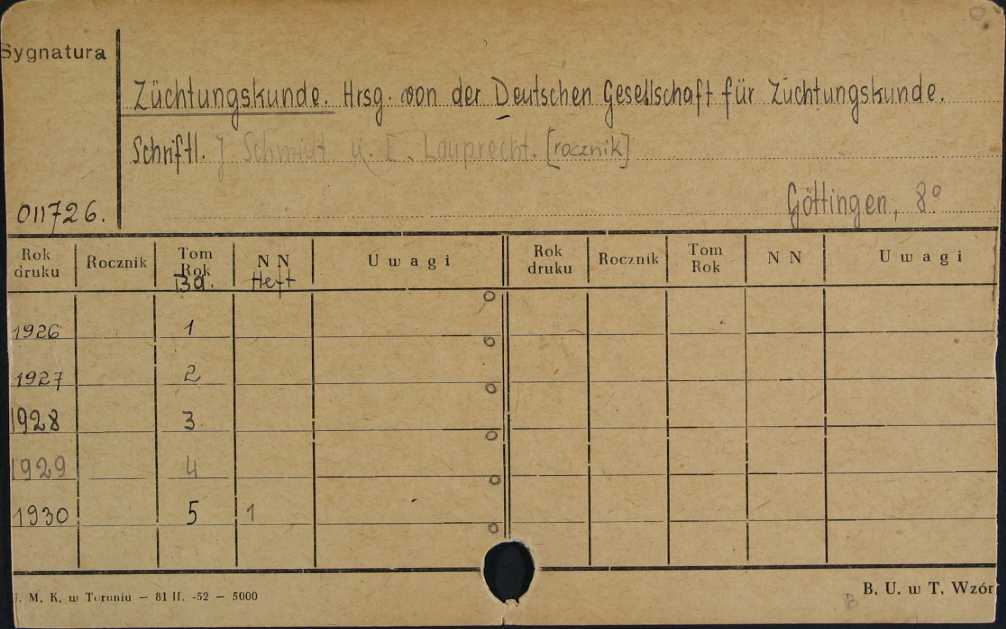 Sygnatura
Züchtungskunde. Hrsg. von der Deutschen Gesellschaft für Züchtungskunde.
Schriftl. J Schmidt u. E. Lauprecht. [rocznik]
011726.
Göttingen, 8°
Rok druku Rocznik Tom Rok N N U w a g i Rok druku Rocznik Tom Rok N N U w a g i
Bd. Heft
1926 1
1927 2
1928 3
1929 4
1930 5 1
M. K. w Toruniu — 81 II. -52 — 5000
B. U. w T. Wzór
B